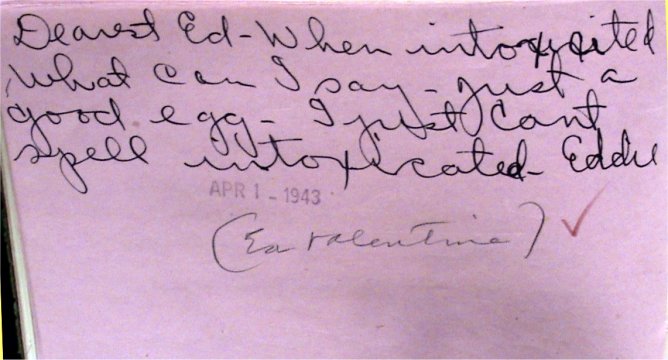 Dearest Ed - When intoxixited
What can I say - just a
good egg - I just cant
spell intoxicated - Eddie
APR 1 - 1943
(Ed Valentine) ✓